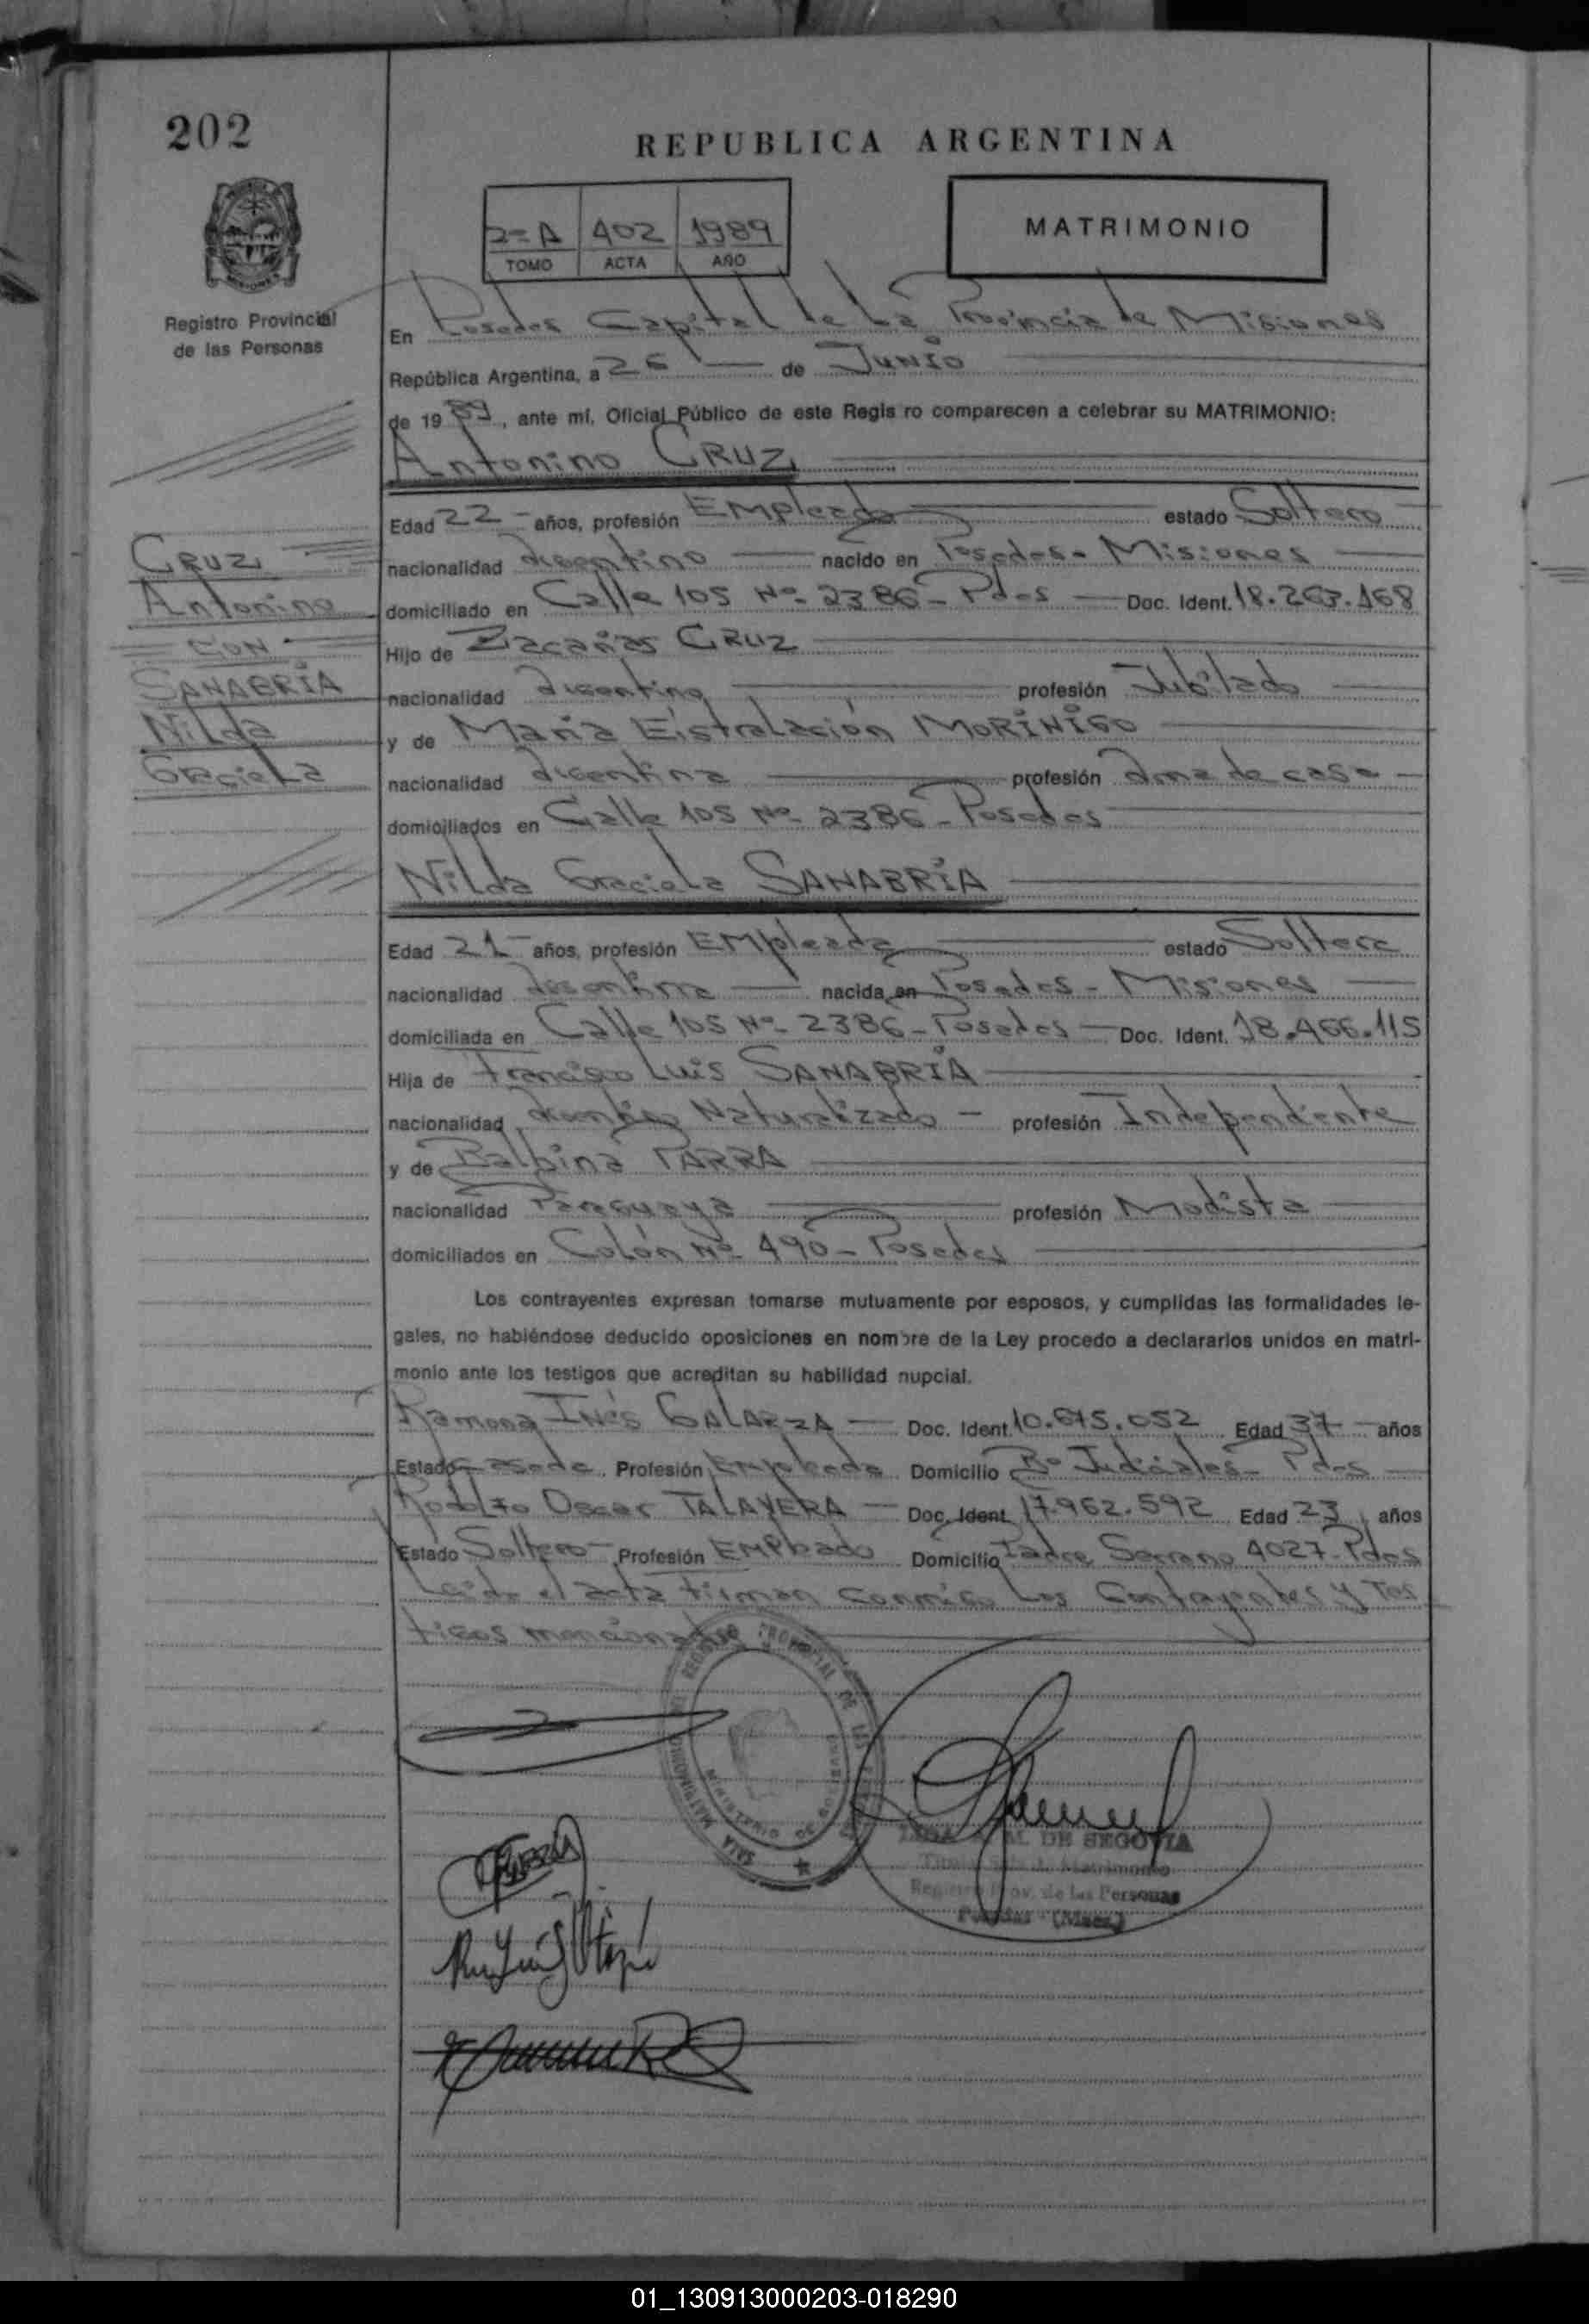 202
REPUBLICA ARGENTINA
2=A 402 1989
TOMO ACTA AÑO
MATRIMONIO
Registro Provincial
de las Personas
En Posadas Capital de La Provincia de Misiones
República Argentina, a 26 — de Junio
de 1989, ante mí, Oficial Público de este Regis ro comparecen a celebrar su MATRIMONIO:
Antonino CRUZ
Edad 22 - años, profesión Empleado estado Soltero
nacionalidad Argentino nacido en Posadas - Misiones
domiciliado en Calle 105 Nº 2386 - Pdas Doc. Ident. 18.263.168
Hijo de Zacarías CRUZ
nacionalidad Argentino profesión Jubilado
y de María MORINIGO
nacionalidad Argentina profesión Ama de casa -
domiciliados en Calle 105 Nº 2386 - Posadas
CRUZ
Antonino
CON
SANABRIA
Nilda
Graciela
Nilda Graciela SANABRIA
Edad 21 - años, profesión Empleada estado Soltera
nacionalidad Argentina nacida en Posadas - Misiones
domiciliada en Calle 105 Nº 2386 - Posadas Doc. Ident. 18.466.115
Hija de Francisco Luis SANABRIA
nacionalidad Argentino Naturalizado - profesión Independiente
y de Balbina PARRA
nacionalidad Paraguaya profesión Modista
domiciliados en Colón Nº 490 - Posadas
Los contrayentes expresan tomarse mutuamente por esposos, y cumplidas las formalidades le-
gales, no habiéndose deducido oposiciones en nombre de la Ley procedo a declararlos unidos en matri-
monio ante los testigos que acreditan su habilidad nupcial.
Ramona Inés GALARZA — Doc. Ident. 10.675.052 Edad 37 - años
Estado Casada. Profesión Empleada Domicilio Bº Judiciales - Pdas
Rodolfo Oscar TALAVERA — Doc. Ident. 17.962.592 Edad 23 años
Estado Soltero - Profesión Empleado Domicilio Padre Serrano 4027 - Pdas
Leída el acta firman conmigo Los Contrayentes y Tes
tigos mencionados
DE SEGOVIA
Matrimonio
Registro Prov. de las Personas
Posadas - (Mnes.)
01_130913000203-018290